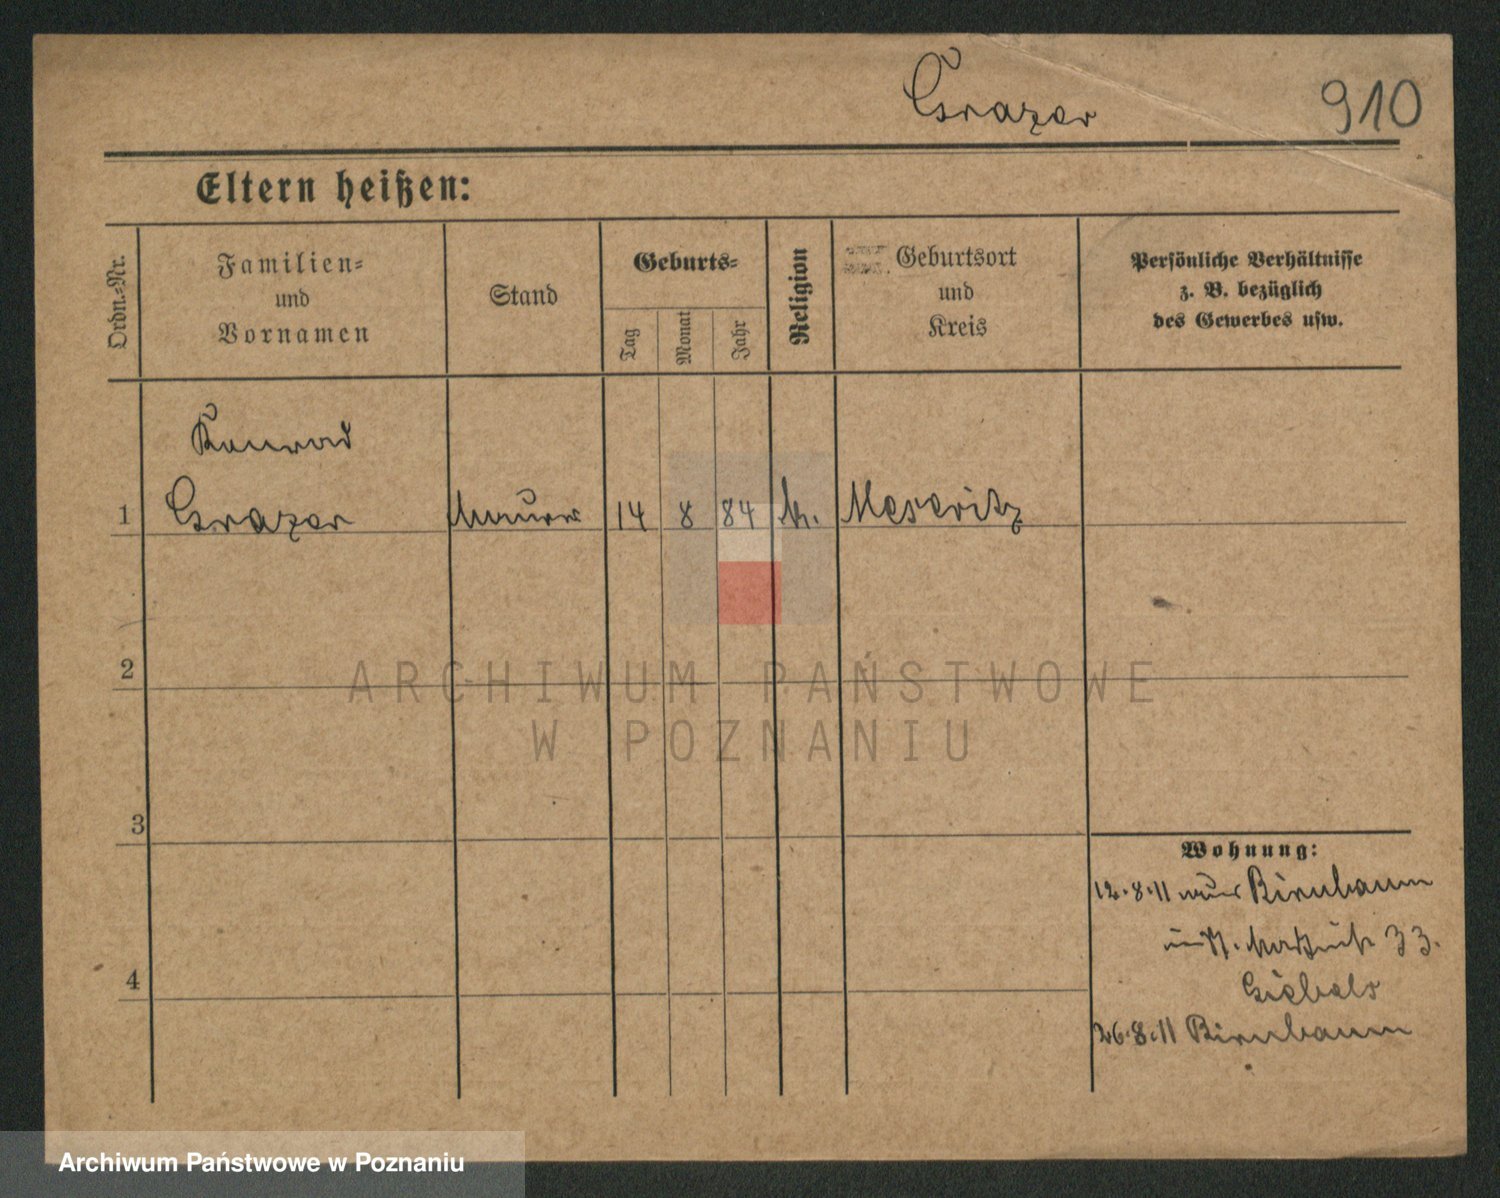 Grazer 910
Eltern heißen:
Ordn.=Nr.
Familien=
und
Vornamen
Stand
Geburts=
Tag
Monat
Jahr
Religion
Geburtsort
und
Kreis
Persönliche Verhältnisse
z. B. bezüglich
des Gewerbes usw.
Konrad
1 Grazer Maurer 14 8 84 k. Meseritz
2
3
4
Wohnung:
12.8.11 Birnbaum
33.
Giebels
26.8.11 Birnbaum
ARCHIWUM PAŃSTWOWE
W POZNANIU
Archiwum Państwowe w Poznaniu